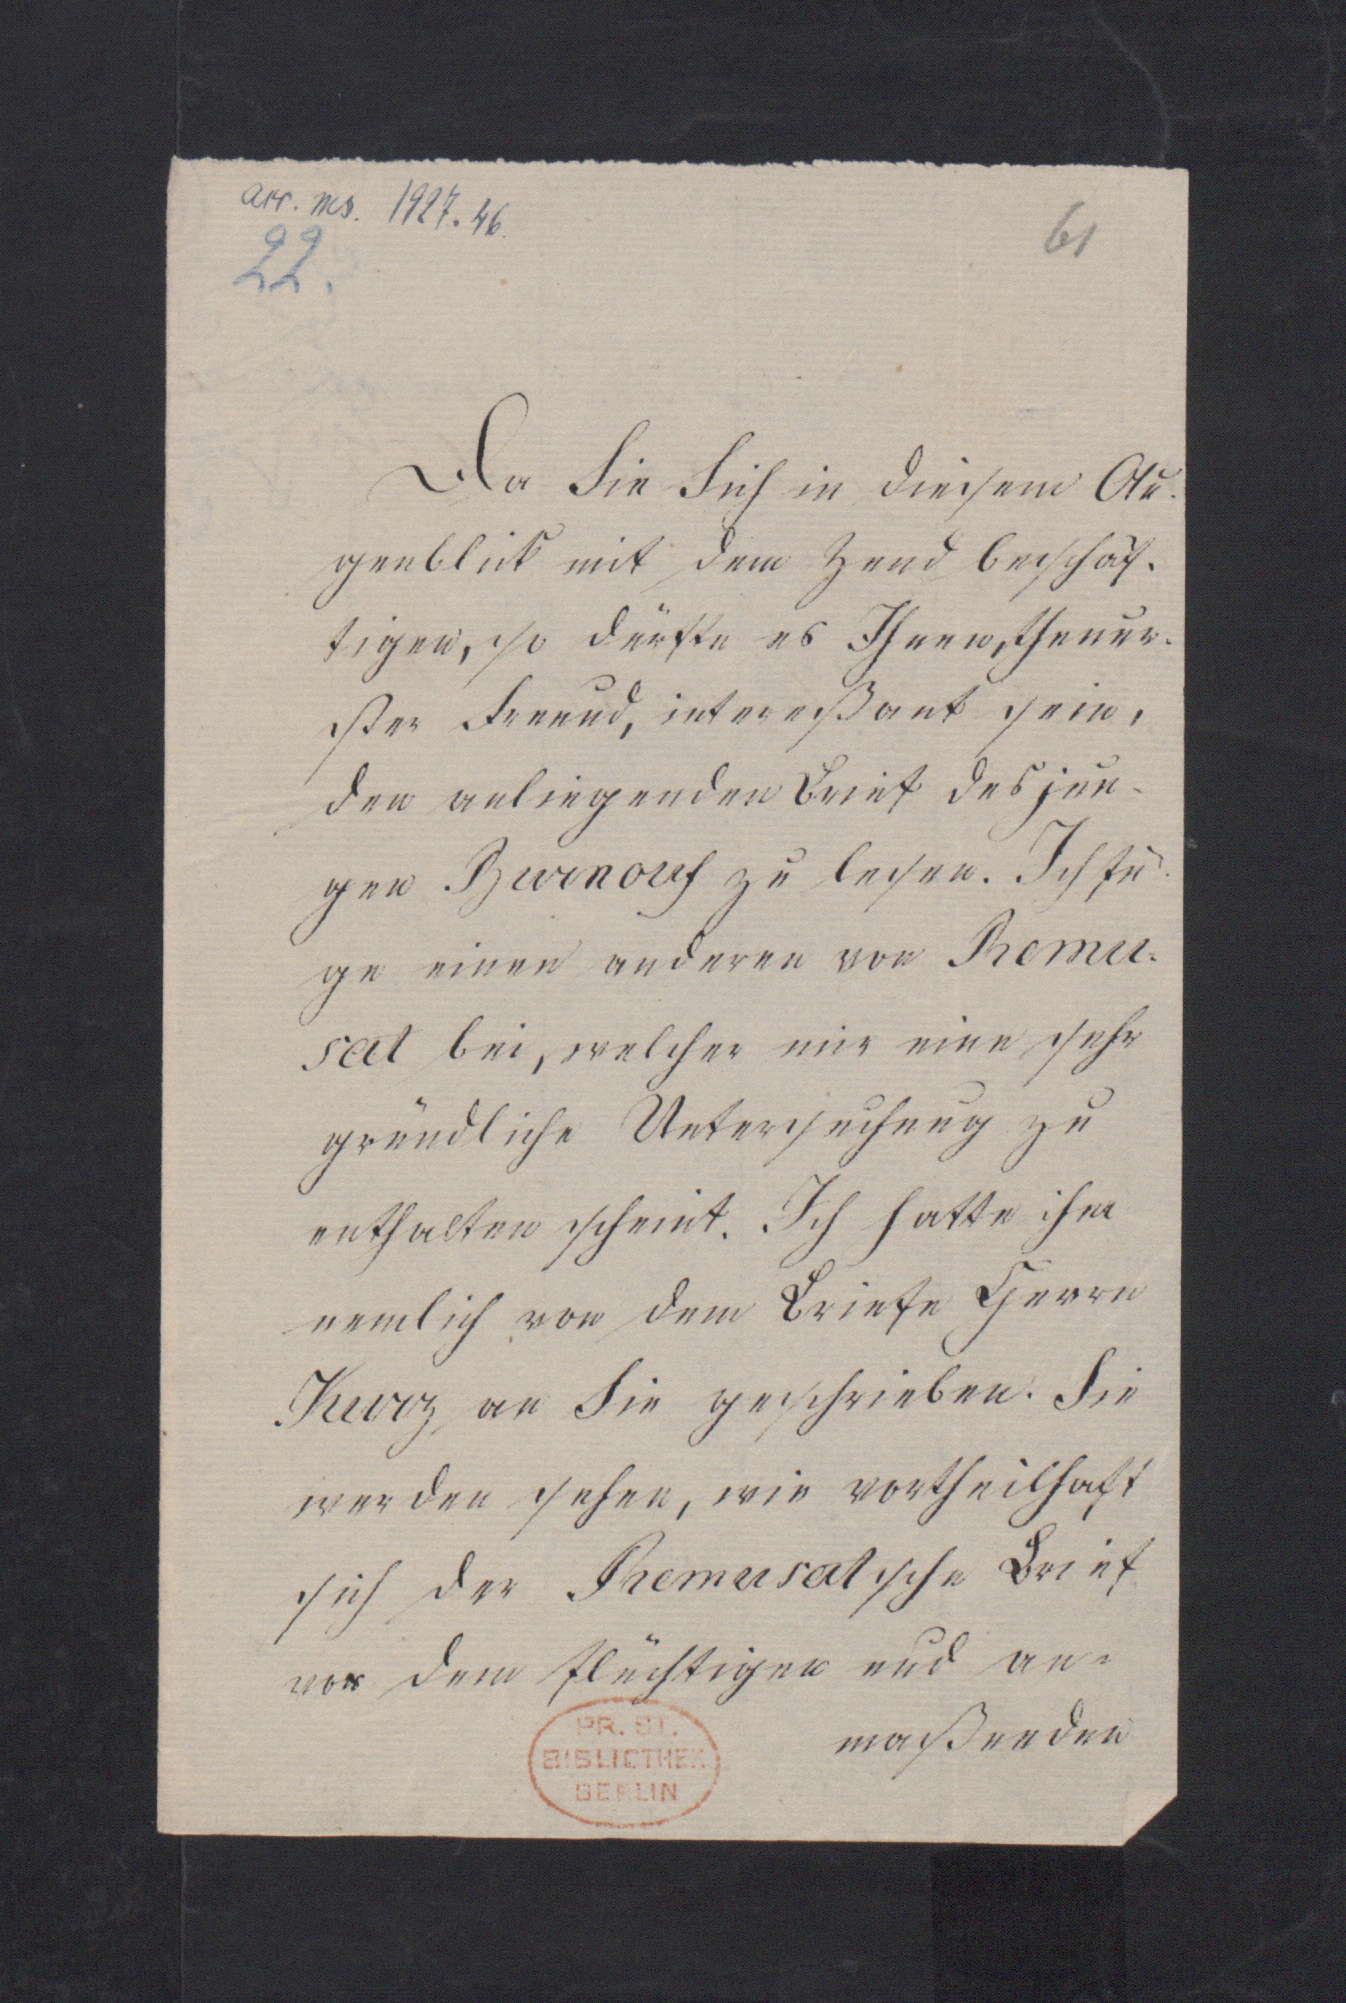 acc. ms. 1927. 46.
22.
61
Da Sie Sich in diesem Au-
genblick mit dem Zend beschäf-
tigen, so dürfte es Ihnen, theuer-
ster Freund, intereßant sein,
den anliegenden Brief des jun-
gen Burnouf zu lesen. Ich fü-
ge einen anderen von Remu-
sat bei, welcher mir eine sehr
gründliche Untersuchung zu
enthalten scheint. Ich hatte ihm
nemlich von dem Briefe Herrn
Kurz an Sie geschrieben. Sie
werden sehen, wie vortheilhaft
sich der Remusatsche Brief
vor dem flüchtigen und an-
maßenden
PR. ST.
BIBLIOTHEK
BERLIN